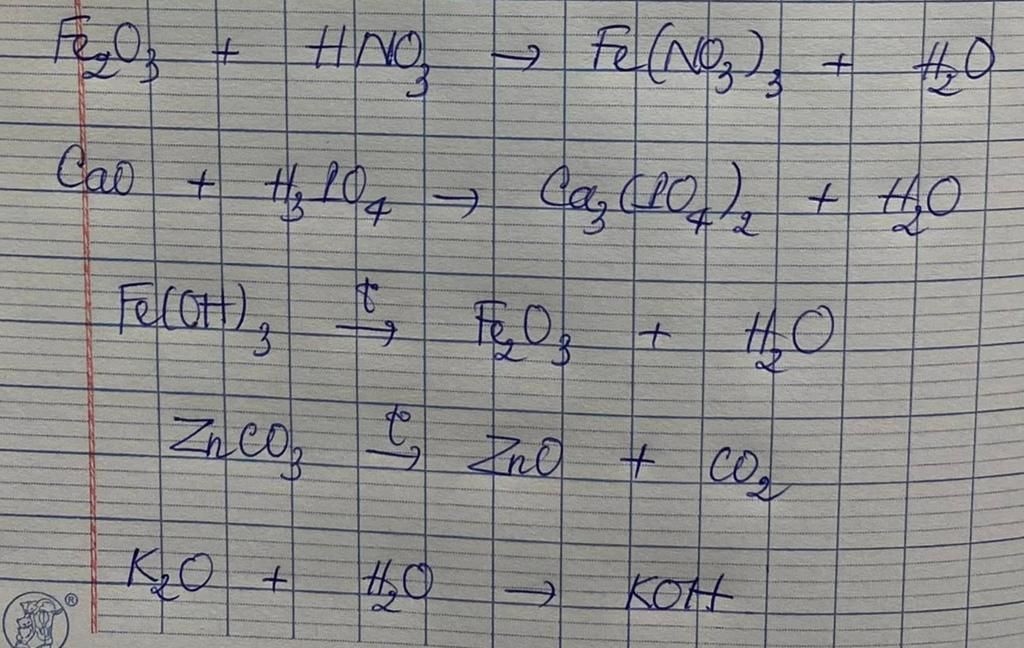 Fe₂O₃ + HNO₃ → Fe(NO₃)₃ + H₂O
CaO + H₃PO₄ → Ca₃(PO₄)₂ + H₂O
Fe(OH)₃ →^{t°} Fe₂O₃ + H₂O
ZnCO₃ →^{t°} ZnO + CO₂
K₂O + H₂O → KOH
®